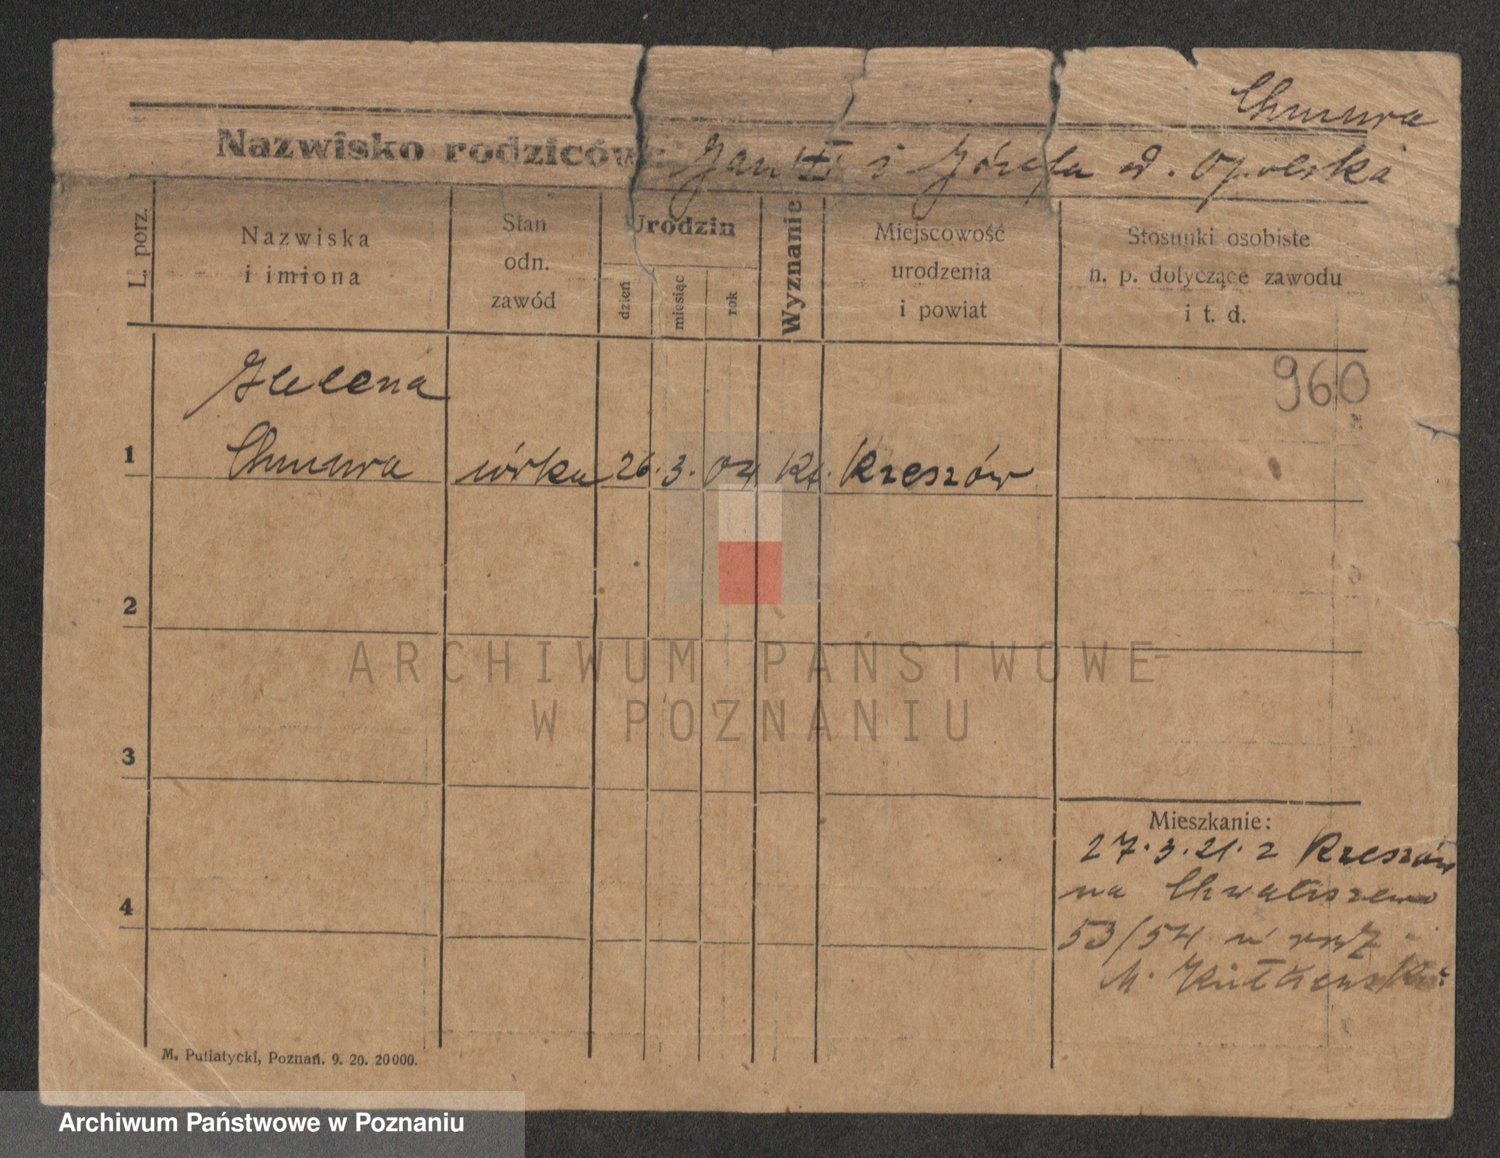 Chmura
Nazwisko rodziców: Jan i Józefa d. Opolska
L. porz.
Nazwiska
i imiona
Stan
odn.
zawód
Urodzin
dzień
miesiąc
rok
Wyznanie
Miejscowość
urodzenia
i powiat
Stosunki osobiste
n. p. dotyczące zawodu
i t. d.
960
Helena
1 Chmura córka 26. 3. 04 Kt. Rzeszów
2
ARCHIWUM PAŃSTWOWE
W POZNANIU
3
Mieszkanie:
27.3.21. z Rzeszów
na Chwaliszewo
4
53/54 u
M.
M. Putiatycki, Poznań. 9. 20. 20000.
Archiwum Państwowe w Poznaniu